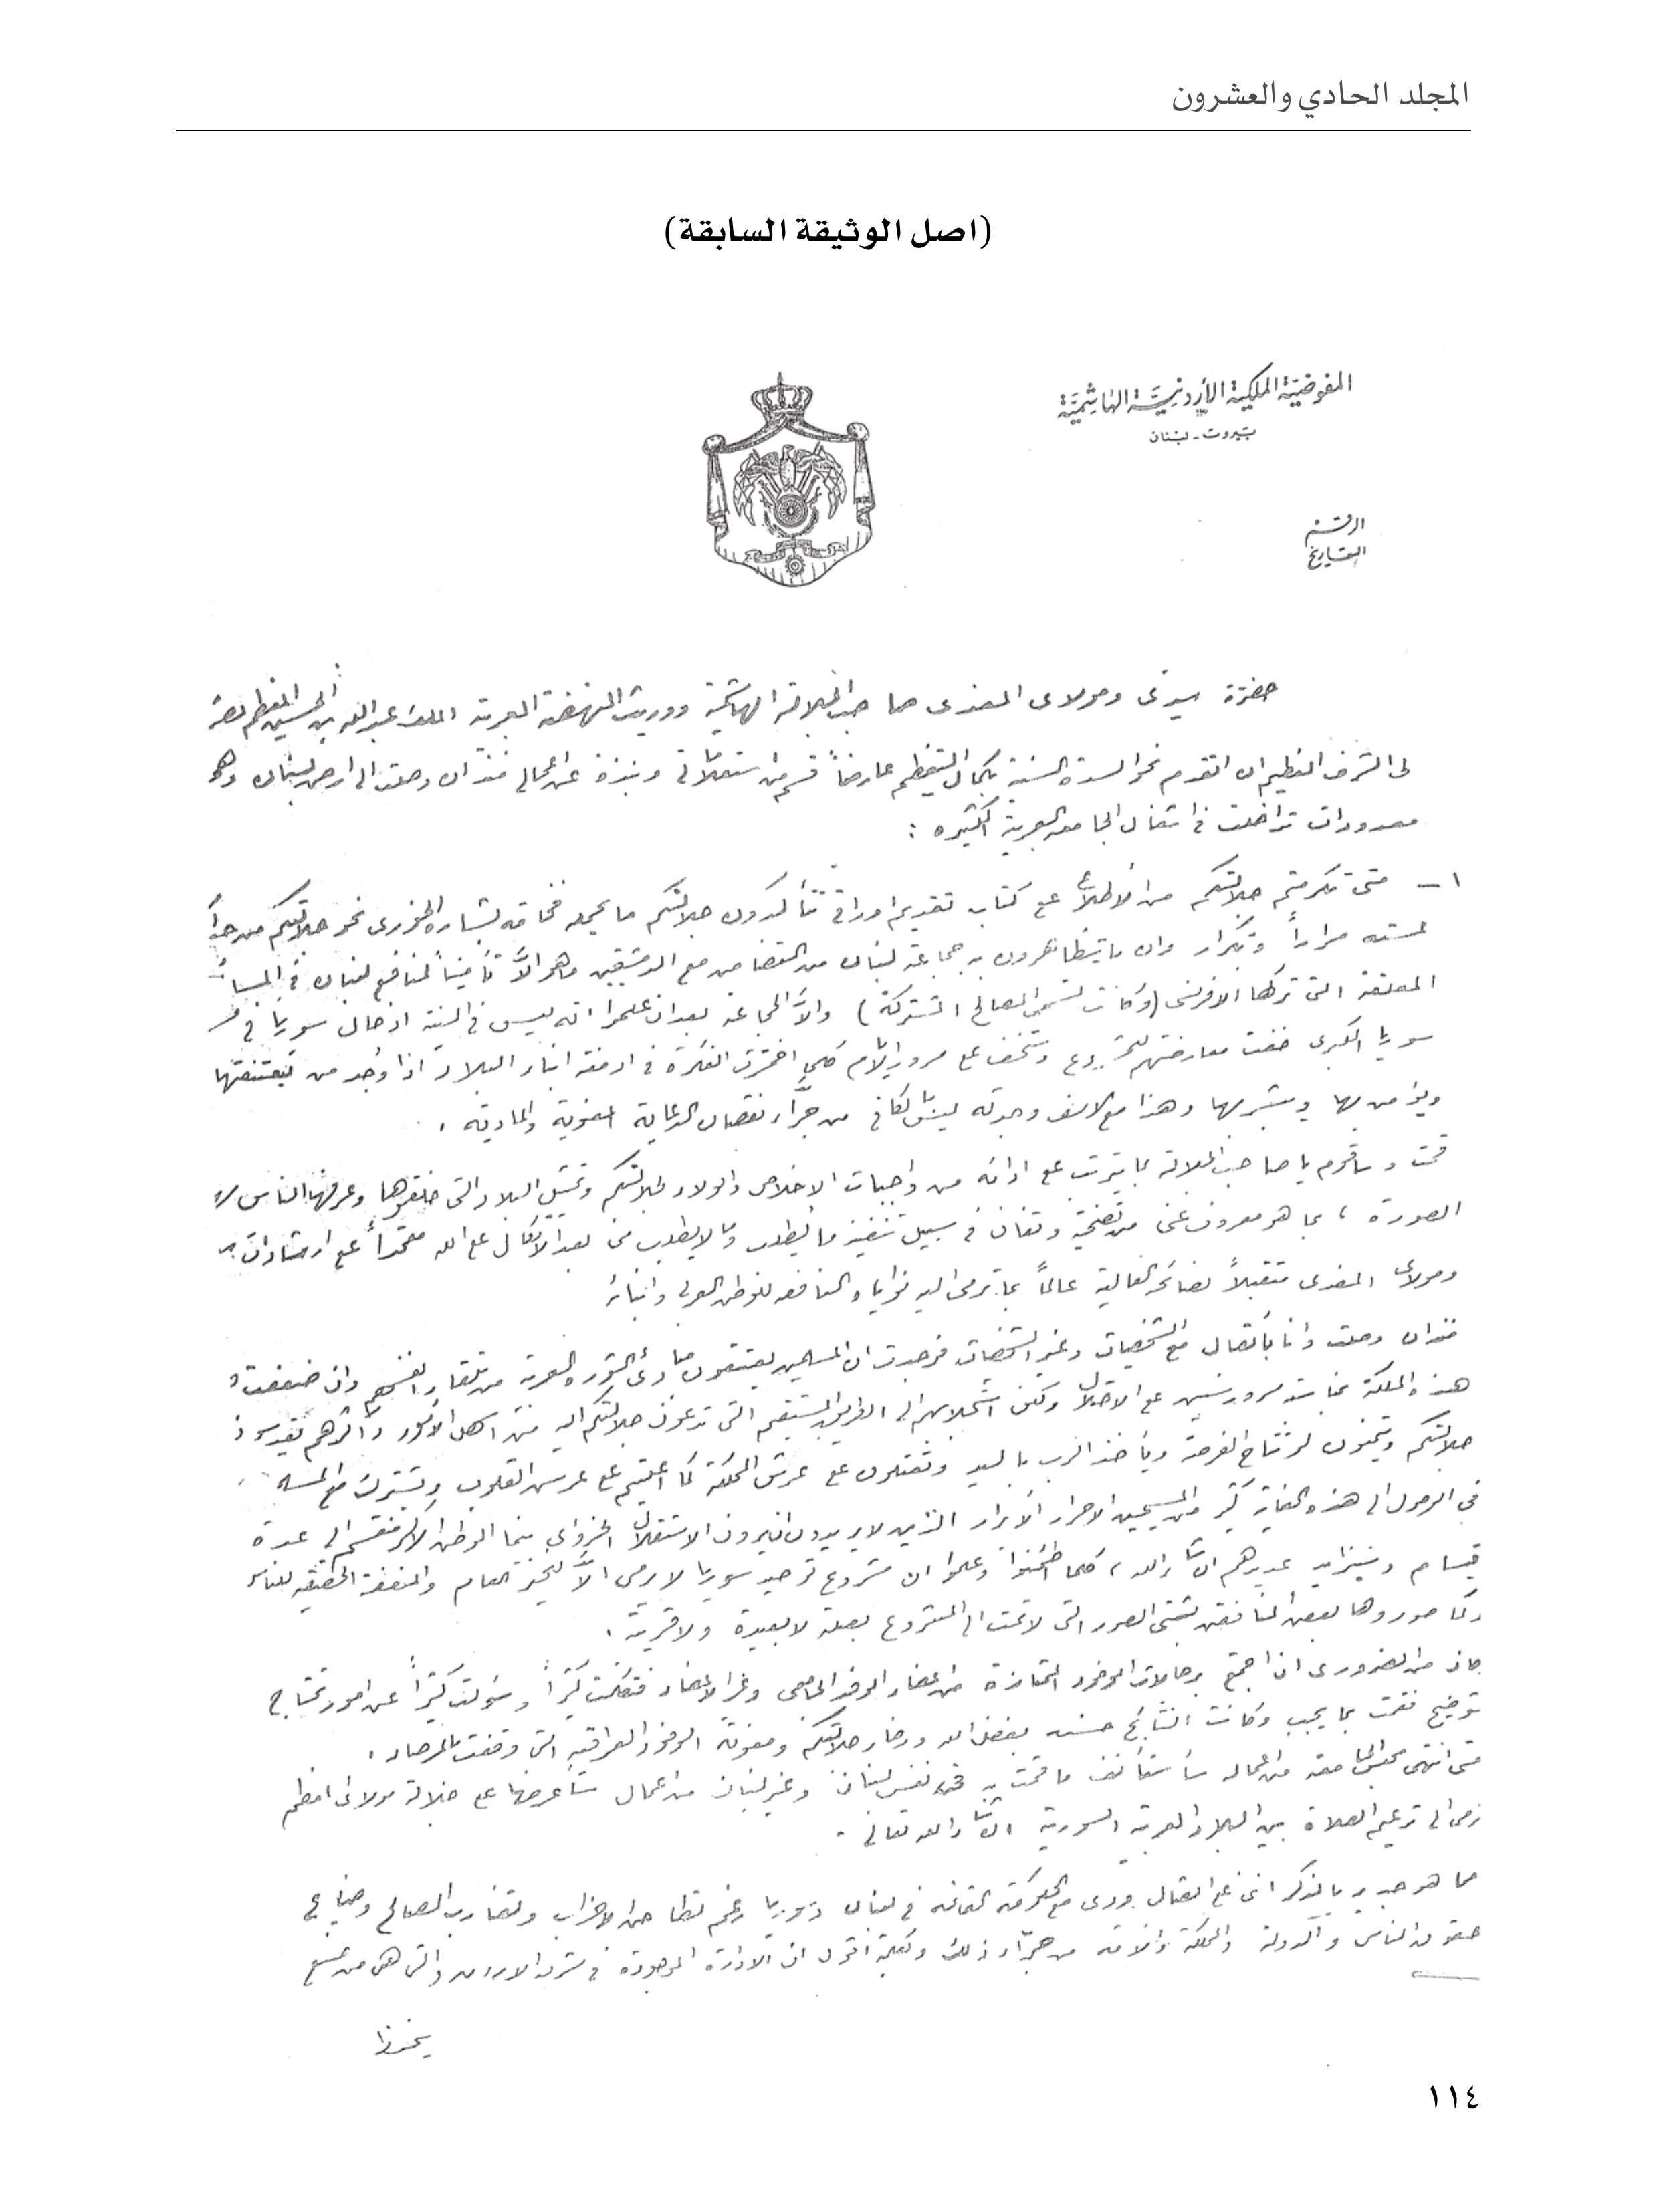 المجلد الحادي والعشرون
(اصل الوثيقة السابقة)
المفوضيّة الملكية الأردنيّة الهاشميّة
بيروت - لبنان
الرقم
التاريخ
حضرة سيدي ومولاي المفدى صاحب الجلالة الهاشمية ووريث النهضة العربية الملك عبدالله بن الحسين المعظم
لي الشرف العظيم ان اتقدم نحو السدة السنية بكمال التعظيم عارضاً ونبذة عن اعمالي منذ ان وصلت الى ارض لبنان
معدودات تداخلت في اشغال الجامعة العربية الكثيرة :
١ - متى تكرمتم جلالتكم من الاطلاع على كتاب تقديم اوراقي تتأكدون جلالتكم ما يحمله فخامة بشاره الخوري نحو جلالتكم من
لمسته مراراً وتكرار وان ما يتظاهرون به جماعة لبنان من التضامن مع الدمشقيين ما هو الاّ تأميناً لمنافع لبنان في
المعلقة التي تركها الافرنسي (وكانت تسمى المصالح المشتركة) والاّ الجماعة بعد ان علموا انه ليس في النية ادخال سوريا في
سوريا الكبرى خفت معارضتهم للمشروع وستخف على مرور الايام كلما اختمرت الفكرة في ادمغة ابناء البلاد اذا وُجد من يعتنقها
ويؤمن بها ويبشر بها وهذا مع الاسف وجدته ليس بكافي من جرّاء نقصان الدعاية المعنوية والمادية .
قمت وسأقوم يا صاحب الجلالة بما يترتب علي ادائه من واجبات الاخلاص والولاء لجلالتكم وتمثيل البلاد التي خلقتموها وعرفها الناس
الصورة ، بما هو معروف عني من تضحية وتفان في سبيل تنفيذ ما يُطلب وما لا يطلب مني بعد الاتكال على الله معتمداً على ارشادات
ومولاي المفدى متقبلاً نصائحه الغالية عالماً بما ترمي اليه نواياه النافعة للوطن العربي وابنائه
منذ ان وصلت وانا بأتصال مع الشخصيات وغير الشخصيات فوجدت ان المسلمين يعتنقون مبادئ الثورة العربية من تلقاء انفسهم وان ضعفت
هذه الملكة بمناسبة مرور سنين على الاحتلال ولكن استجلابهم الى الطريق المستقيم التي تدعون جلالتكم اليه من اسهل الامور واكثرهم يقدسون
جلالتكم ويتمنون لو تتاح الفرصة ويأخذ الرب باليد وتعتلون على عرش المملكة كما اعتليتم على عرش القلوب ويشترك مع
في الوصول الى هذه الغاية كثير من المسيحيين الاحرار الابرار الذين لا يريدون ان يرون الاستقلال بينما الوطن الاكبر منقسم الى عدة
وسيزايد عددهم ان شاء الله ، كلما اطمئنوا وعلموا ان مشروع توحيد سوريا لا يرمي الاّ للخير العام والمنفعة الحقيقية
كما صوروها بعض المنافقين بشتى الصور التي لا تمت الى المشروع بصلة لا بعيدة ولا قريبة .
من الضروري ان اجتمع برجالات الوفود الممتازة من اعضاء الوفد وغير الاعضاء فتكلمت كثيراً وسُولت كثيراً عن امور تحتاج
توضيح فقمت بما يجب وكانت النتائج حسنه بفضل الله ورضاء جلالتكم ومعونة الوفود العراقية التي وقفت بالمرصاد .
متى انتهى مجلس الجامعة من اعماله سأستأنف ما قمت به في نفس لبنان وغير لبنان من اعمال سأعرضها على جلالة مولاي المعظم
ترمي الى تدعيم الصلاة بين البلاد العربية السورية ان شاء الله تعالى .
مما هو جدير بالذكر انني على اتصال ودي مع الحكومة القائمة في لبنان وسوريا رغم تطاحن الاحزاب وتضارب المصالح وضياع
حقوق الناس والدولة والمملكة والامة من جرّاء ذلك وبكلمة اقول ان الادارة الموجودة في شرق الاردن والتي هي من صنع
١١٤